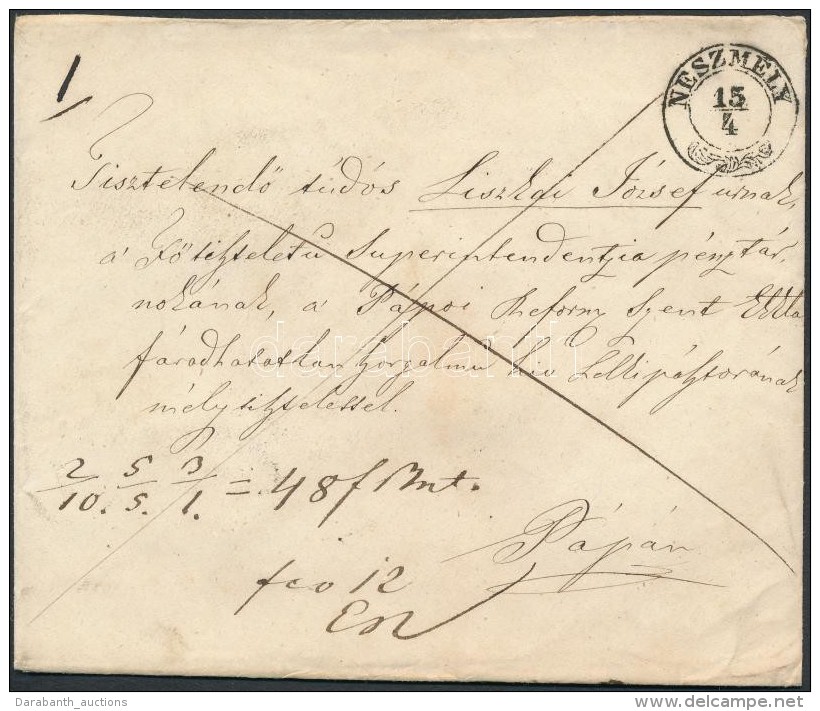 1
NESZMÉLY
15
4
Tisztelendő túdós Liszkai József urnak,
a Főtiszteletű Superintendentzia pénztár,
nokának, a Pápai Reform Szent Ekkla
fáradhatatlan szorgalmu hív Lelkipásztorának
mély tisztelettel.
2/10. 5/5. 3/1. = 48 f Bnt.
fco 12
Pápán
darabanth
Darabanth_auctions
www.delcampe.net